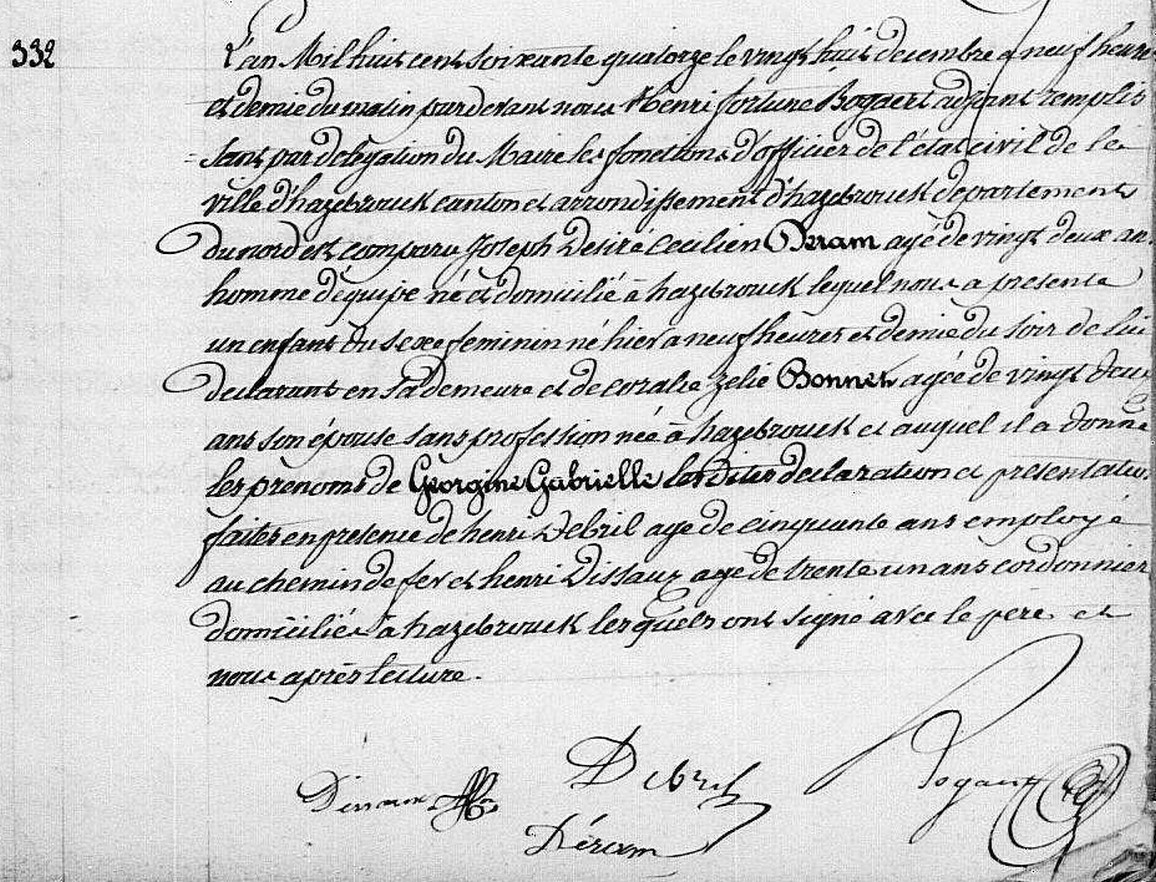 332
L'an Mil huit cent soixante quatorze le vingt huit decembre a neuf heures
et demie du matin par devant nous Henri fortuné Bogaert adjoint remplis
= sant par délégation du Maire les fonctions d'officier de l'état civil de la
ville d'hazebrouck canton et arrondissement d'hazebrouck departement
du nord est comparu Joseph Desiré Cecilien Deram agé de vingt deux ans
homme d'équipe né et domicilié à hazebrouck lequel nous a presenté
un enfant du sexe feminin né hier a neuf heures et demie du soir de lui
declarant en sa demeure et de coralie Zelie Bonnet agée de vingt deux
ans son épouse sans profession née à hazebrouck et auquel il a donné
les prénoms de Georgine Gabrielle les dites declaration et presentation
faites en presence de henri Debril agé de cinquante ans employé
au chemin de fer et henri Dissaux agé de trente un ans cordonnier
domiciliés à hazebrouck lesquels ont signé avec le père et
nous après lecture.
Debril
Bogaert
Dissaux
Déram